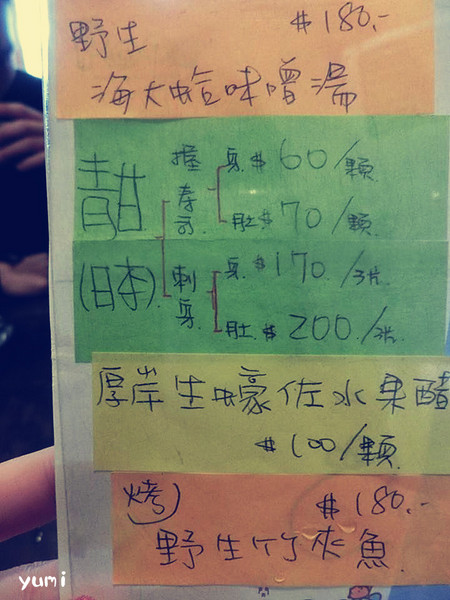 野生 $180.-
海大蛤味噌湯
青甘(日本)
握壽司 身 $60/顆
肚 $70/顆
刺身 身 $170./3片
肚 $200./3片
厚岸生蠔佐水果醋
$100/顆
(烤) $180.-
野生竹夾魚
yumi